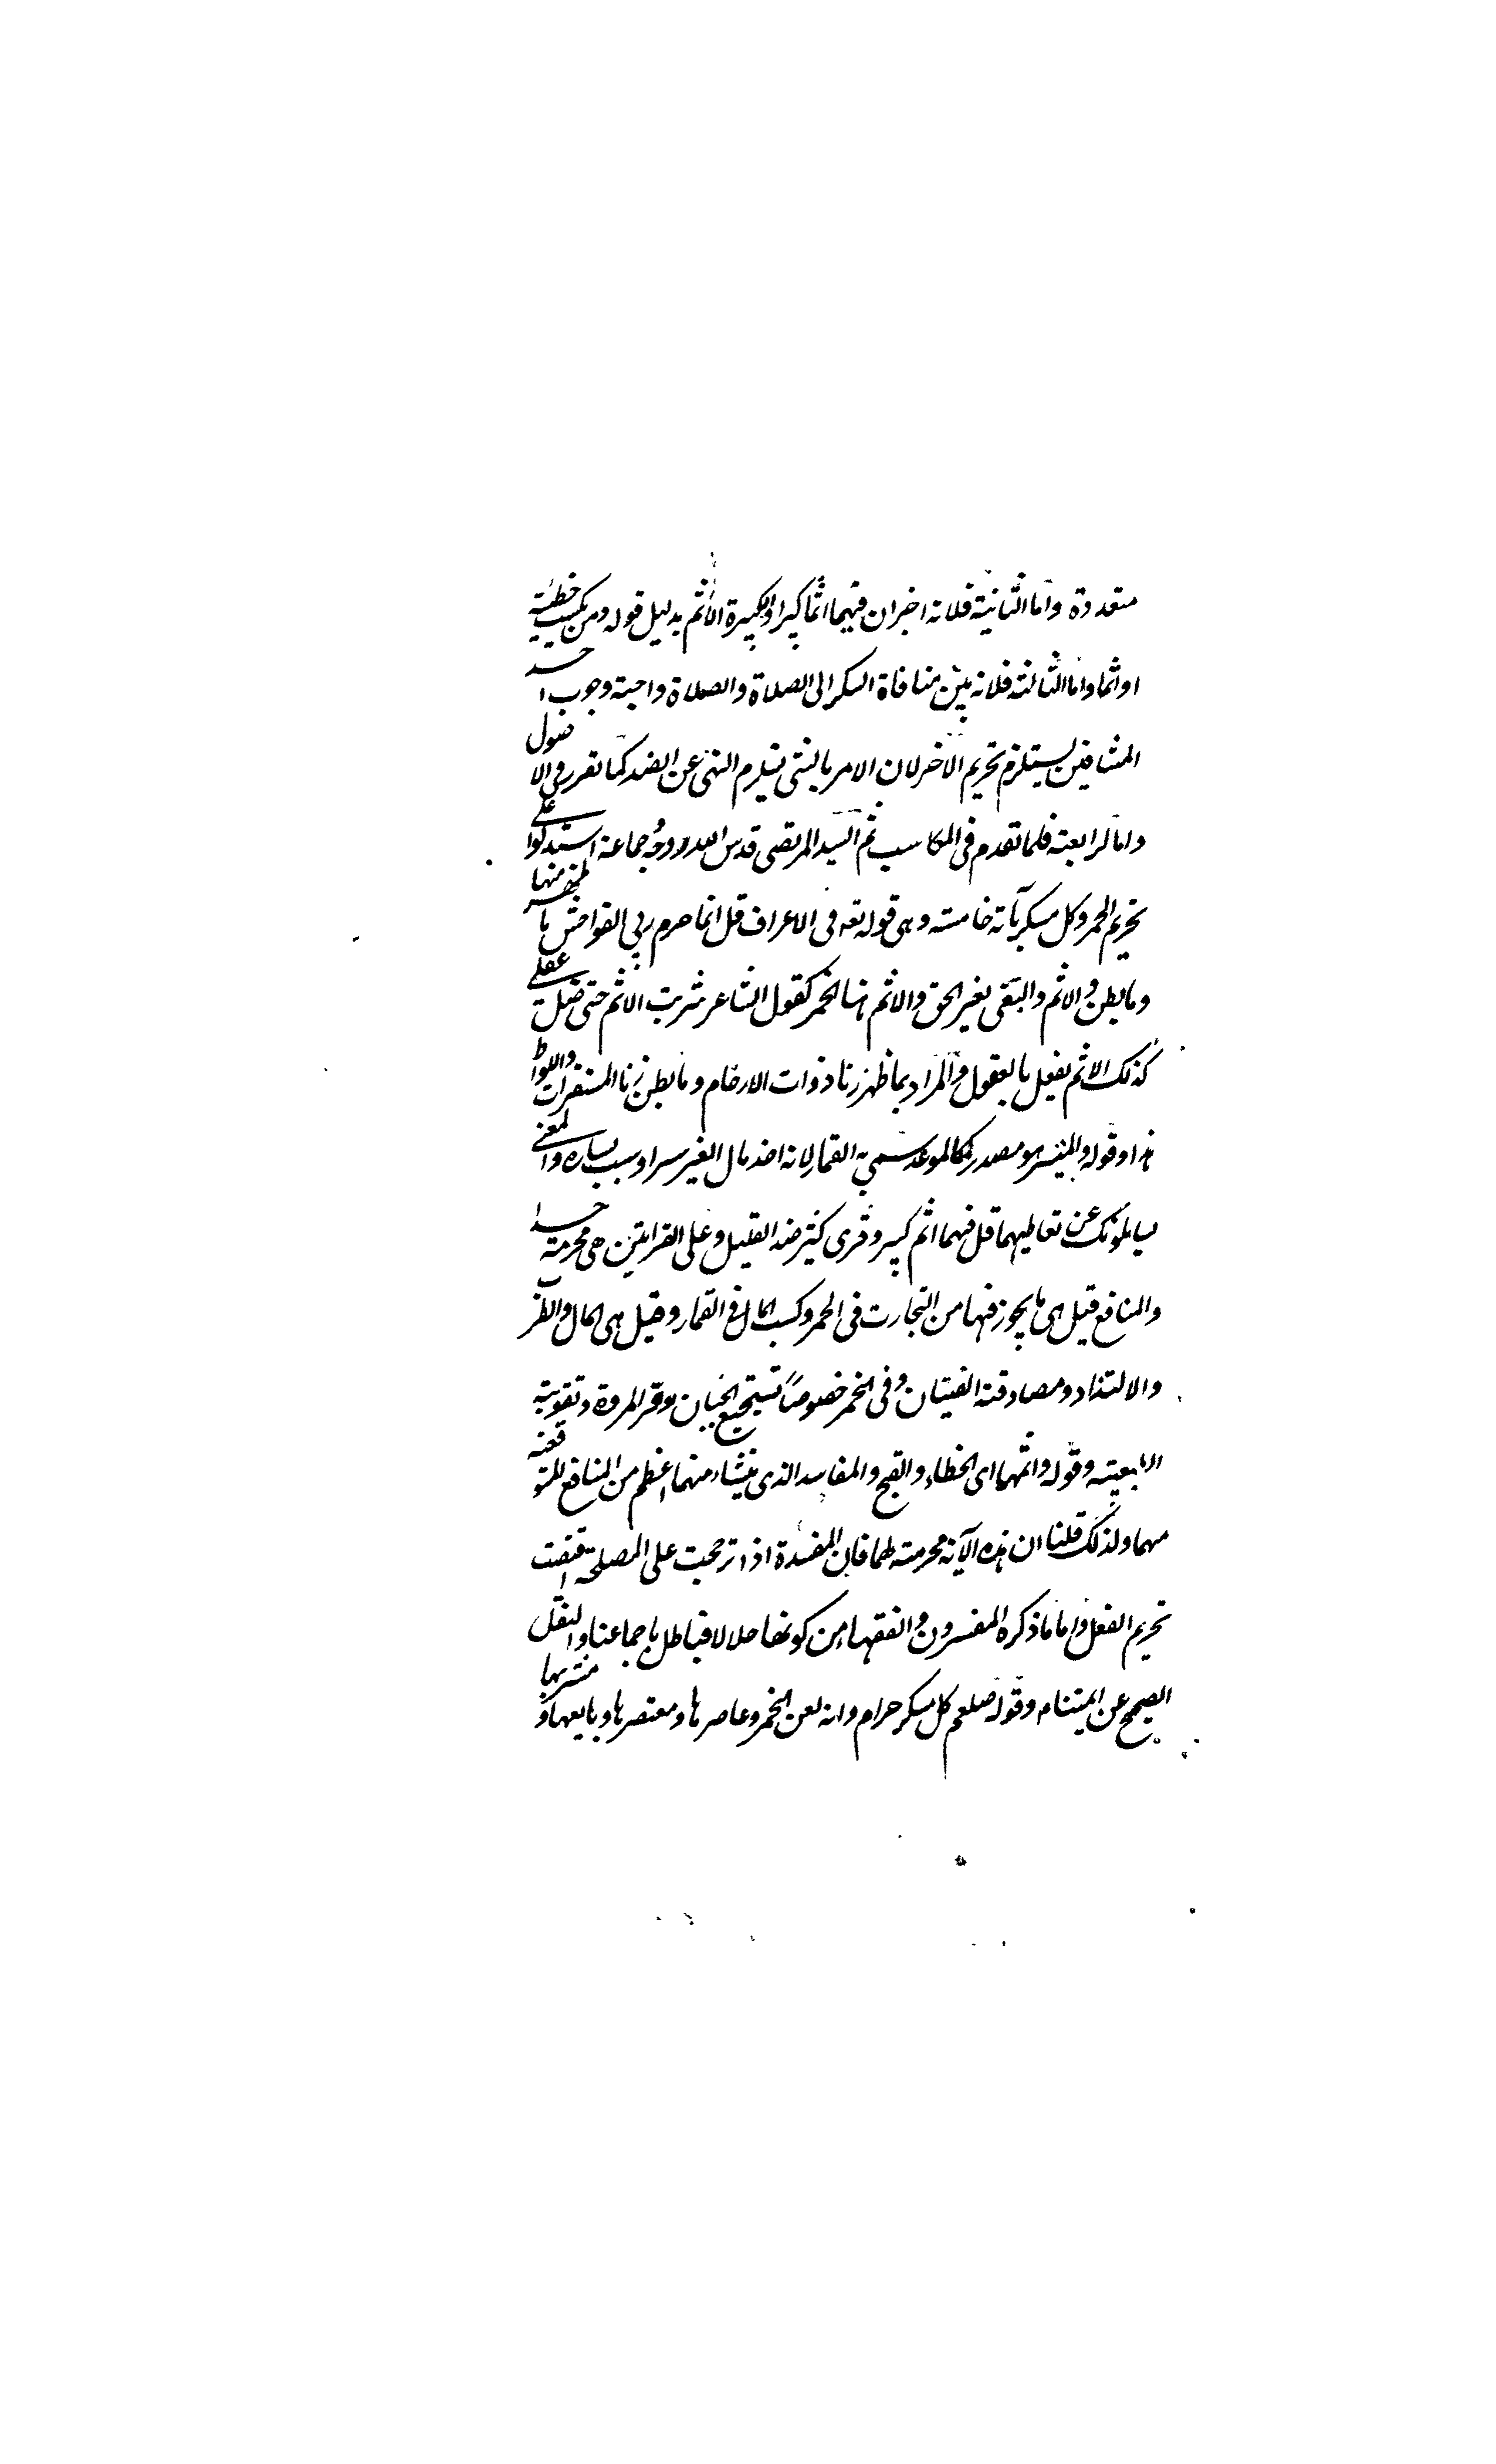 متعددة واما الثانية فلانه اخبر ان فيهما اثما كبيرا والكبيرة الاثم بدليل قوله ومن يكسب خطيئة
او اثما واما الثالثة فلانه بين منافاة السكر الى الصلاة والصلاة واجبة وجوب احد
المتنافيين يستلزم تحريم الاخر لان الامر بالشئ يستلزم النهى عن الضد كما تقرر فى الاصول
واما الرابعة فلما تقدم فى المكاسب ثم السيد المرتضى قدس الله روحه وجماعة استدلوا على
تحريم الخمر وكل مسكر بآية خامسة وهى قوله تعه فى الاعراف قل انما حرم ربي الفواحش ما ظهر منها
وما بطن والاثم والبغى بغير الحق والاثم هنا الخمر كقول الشاعر شربت الاثم حتى ضل عقلى
كذلك الاثم يفعل بالعقول والمراد بما ظهر زنا ذوات الارحام وما بطن زنا المستقرات واللواط
هذا وقوله والميسر هو مصدر كالموعد سمي به القمار لانه اخذ مال الغير بيسر او سبب يساره والمعنى
يسالونك عن تعاطيهما قل فيهما اثم كبير وقرى كثير ضد القليل وعلى القرايتين هى محرمة جدا
والمنافع قيل هى ما يجوز فيها من التجارت فى الخمر وكسب المال فى القمار وقيل هى المال والطرب
والالتذاذ ومصادقة الفتيان وفى الخمر خصوصا تشجيع الجبان وتوفر المروة وتقوية
الطبيعة وقوله واثمهما اى الخطاء والقبح والمفاسد الذى ينشاء منهما اعظم من المنافع المتوقعة
منهما ولذلك قلنا ان هذه الآية محرمة لهما فان المفسدة اذا ترجحت على المصلحة اقتضت
تحريم الفعل واما ما ذكره المفسرون والفقهاء من كونها حلالا فباطل باجماعنا والنقل
الصحيح عن ايمتنا م وقوله صلعم كل مسكر حرام وانه لعن الخمر وعاصرها ومعتصرها وبايعها ومشتريها